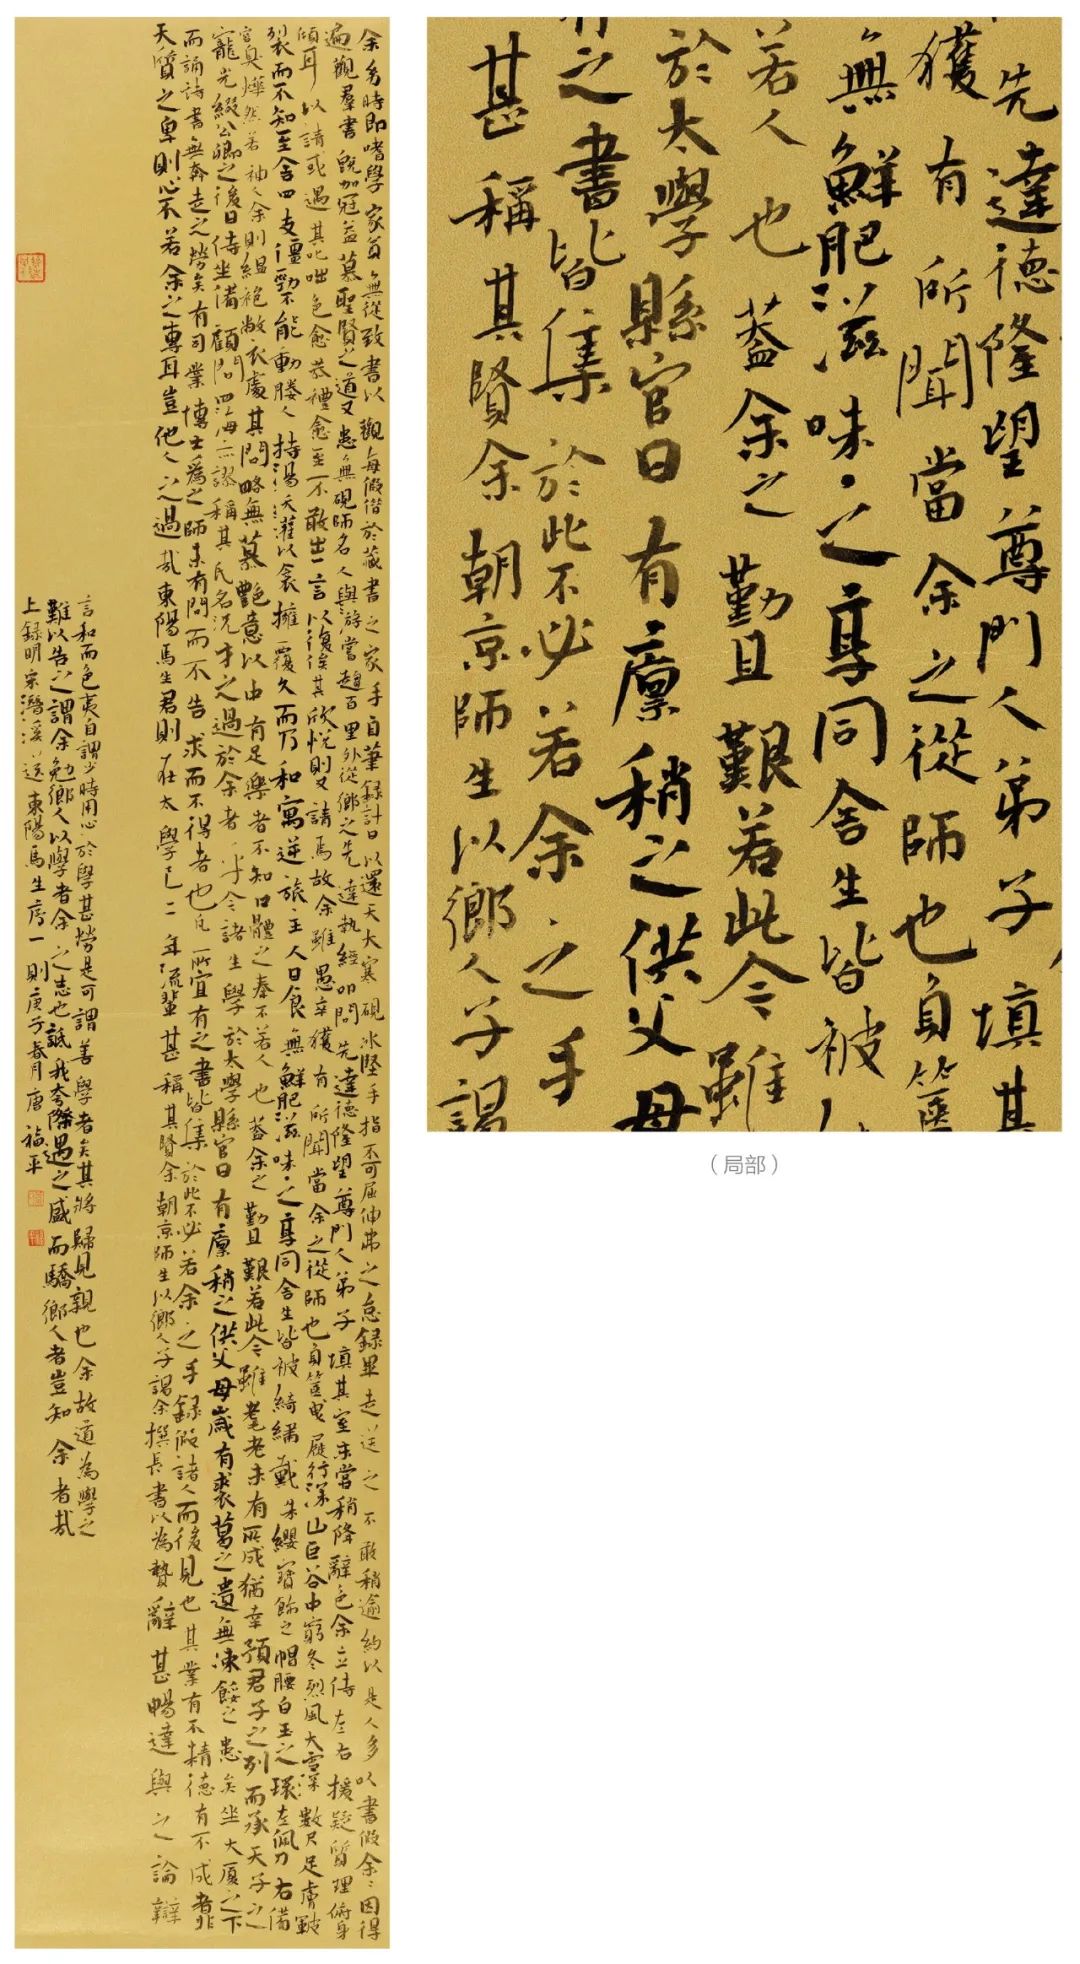 余幼時即嗜學家貧無從致書以觀每假借於藏書之家手自筆録計日以還天大寒硯冰堅手指不可屈伸弗之怠録畢走送之不敢稍逾約以是人多以書假余〻因得
遍觀羣書既加冠益慕聖賢之道又患無碩師名人與游嘗趨百里外從鄉之先達執經叩問先達德隆望尊門人弟子填其室未嘗稍降辭色余立侍左右援疑質理俯身
傾耳以請或遇其叱咄色愈恭禮愈至不敢出一言以復俟其欣悅則又請焉故余雖愚卒獲有所聞當余之從師也負篋曳屣行深山巨谷中窮冬烈風大雪深數尺足膚皸
裂而不知至舍四支僵勁不能動媵人持湯沃灌以衾擁覆久而乃和寓逆旅主人日食無鮮肥滋味之享同舍生皆被綺繡戴朱纓寶飾之帽腰白玉之環左佩刀右備
容臭燁然若神人余則縕袍敝衣處其間略無慕艷意以中有足樂者不知口體之奉不若人也蓋余之勤且艱若此今雖耄老未有所成猶幸預君子之列而承天子之
寵光綴公卿之後日侍坐備顧問四海亦謬稱其氏名況才之過於余者乎今諸生學於太學縣官日有廩稍之供父母歲有裘葛之遺無凍餒之患矣坐大廈之下
而誦詩書無奔走之勞矣有司業博士爲之師未有問而不告求而不得者也凡所宜有之書皆集於此不必若余之手録假諸人而後見也其業有不精德有不成者非
天質之卑則心不若余之專耳豈他人之過哉東陽馬生君則在太學已二年流輩甚稱其賢余朝京師生以鄉人子謁余撰長書以為贄辭甚暢達與之論辯
言和而色夷自謂少時用心於學甚勞是可謂善學者矣其將歸見親也余故道為學之
難以告之謂余勉鄉人以學者余之志也詆我夸際遇之盛而驕鄉人者豈知余者哉
上録明宋潛溪送東陽馬生序一則庚子春月唐福平
先達德隆望尊門人弟子填其
獲有所聞當余之從師也負篋
無鮮肥滋味之享同舍生皆被
若人也蓋余之勤且艱若此今雖
於太學縣官日有廩稍之供父母
之書皆集於此不必若余之手
甚稱其賢余朝京師生以鄉人子謁
（局部）